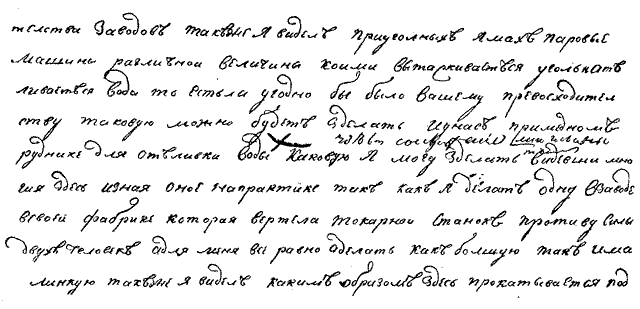 телства Заводовъ такъже я виделъ приугольныхъ ямахъ паровые
машины различной величины коими вытаркивается угольиать
ливается вода то естьли угодно бы было вашему превосходител
ству таковую можно будетъ зделать унасъ при медномъ
руднике для отъливки воды каковую я могу зделать видевши мно
гия здесь изная оное напрактике такъ какъ я делалъ одну взаводе
всвоей фабрике которая вертела токарной станокъ противу силы
двухъ человекъ адля меня все равно зделать какъ большую такъ има
линкую такъже я виделъ какимъ образомъ здесь прокатывается под